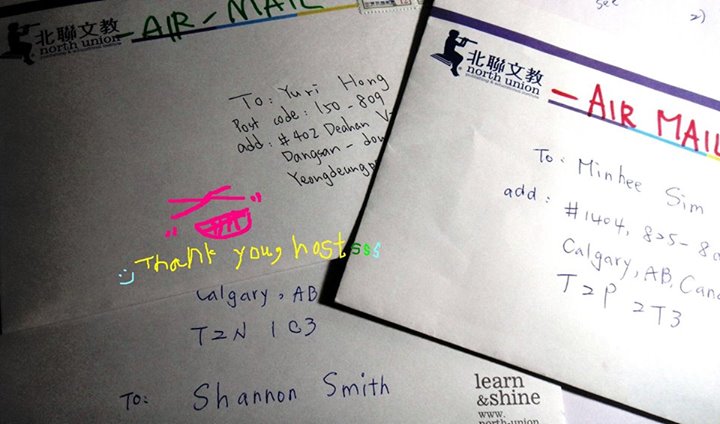 北聯文教
north union
-AIR-MAIL
To: Yuri Hong
Post code: 150-809
add: #402 Deahan
Dangsan-
Thank you, hostsss
Calgary, AB
T2N 1C3
To: Shannon Smith
learn
&shine
www.
north-union
北聯文教
north union
-AIR MAIL
To: Minhee Sim
add:
#1404, 825-
Calgary, AB,
T2P 2T3
see
2)